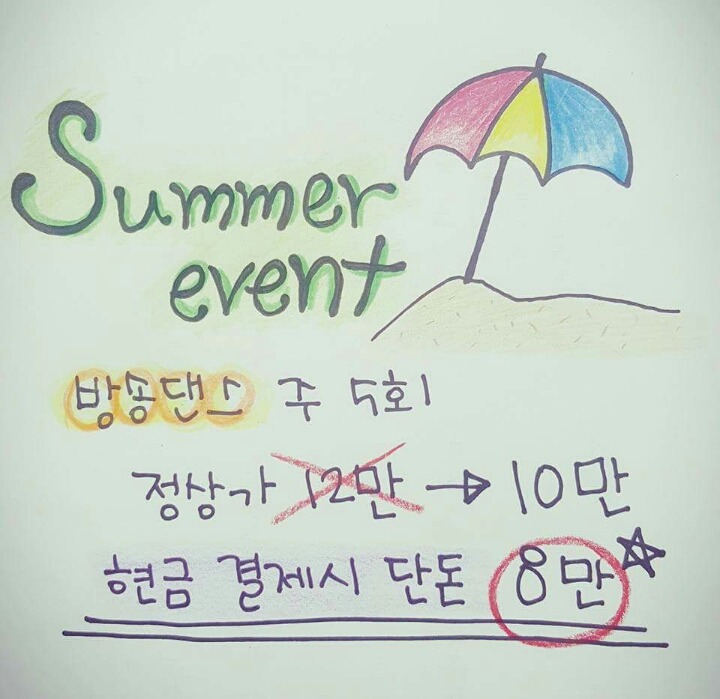 Summer
event
방송댄스 주 5회
정상가 12만 → 10만
현금 결제시 단돈 8만